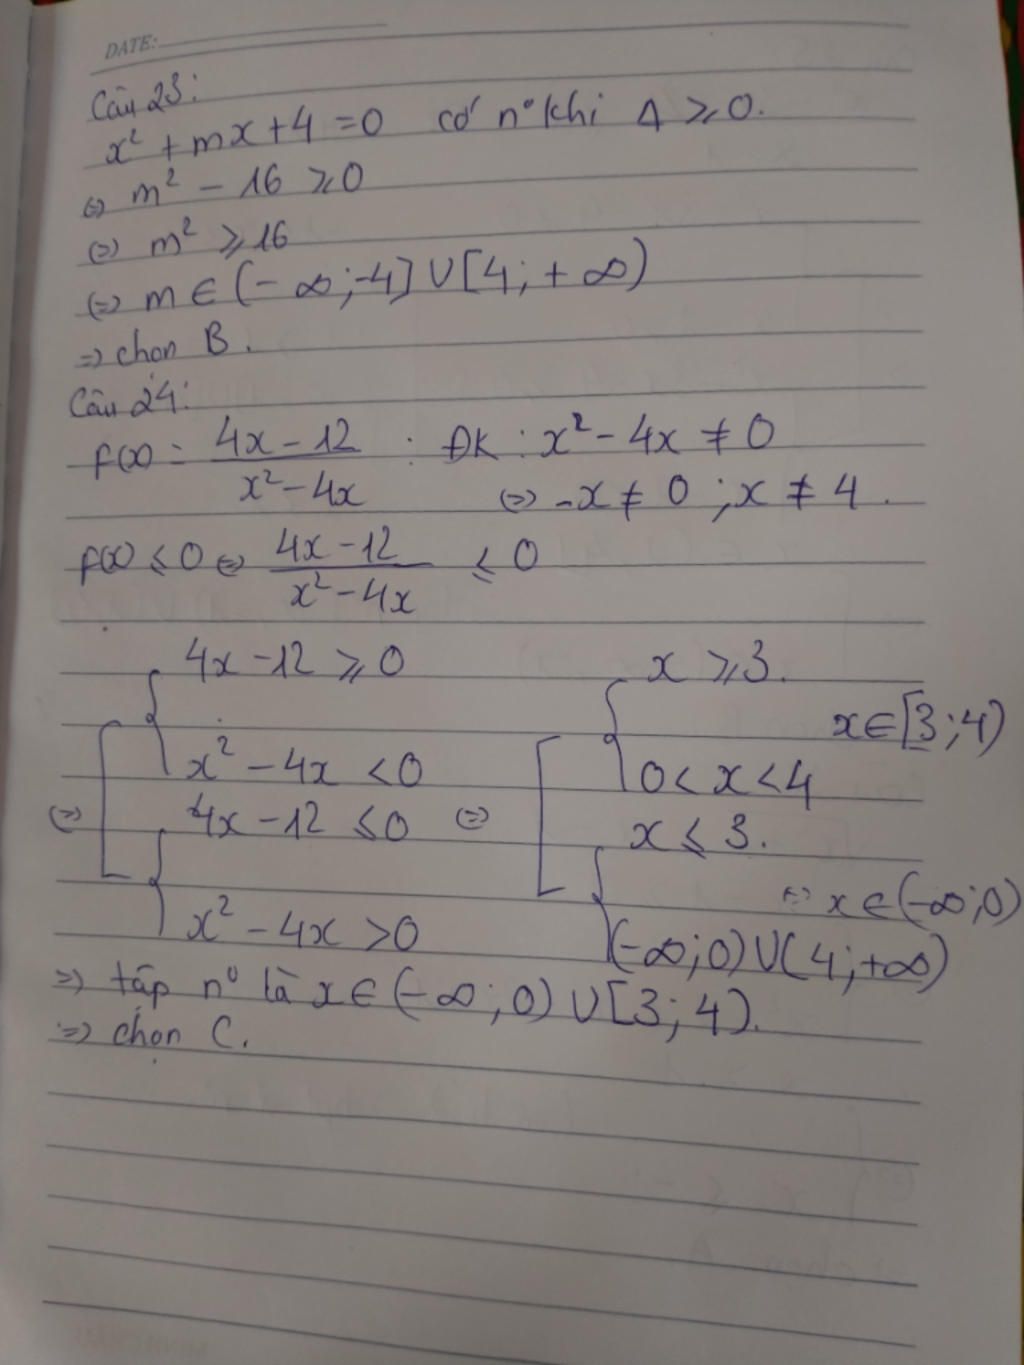 DATE:
Câu 23:
x² + mx + 4 = 0 có n° khi Δ ⩾ 0.
⇔ m² - 16 ⩾ 0
⇔ m² ⩾ 16
⇔ m ∈ (-∞; -4] ∪ [4; +∞)
⇒ chọn B.
Câu 24:
f(x) = (4x - 12)/(x² - 4x) . ĐK : x² - 4x ≠ 0
⇔ x ≠ 0 ; x ≠ 4 .
f(x) ⩽ 0 ⇔ (4x - 12)/(x² - 4x) ⩽ 0
4x - 12 ⩾ 0 x ⩾ 3.
x ∈ [3; 4)
x² - 4x < 0 0 < x < 4
⇔ 4x - 12 ⩽ 0 ⇔ x ⩽ 3.
⇔ x ∈ (-∞; 0)
x² - 4x > 0 (-∞; 0) ∪ (4; +∞)
⇒ tập n° là x ∈ (-∞; 0) ∪ [3; 4).
⇒ chọn C.